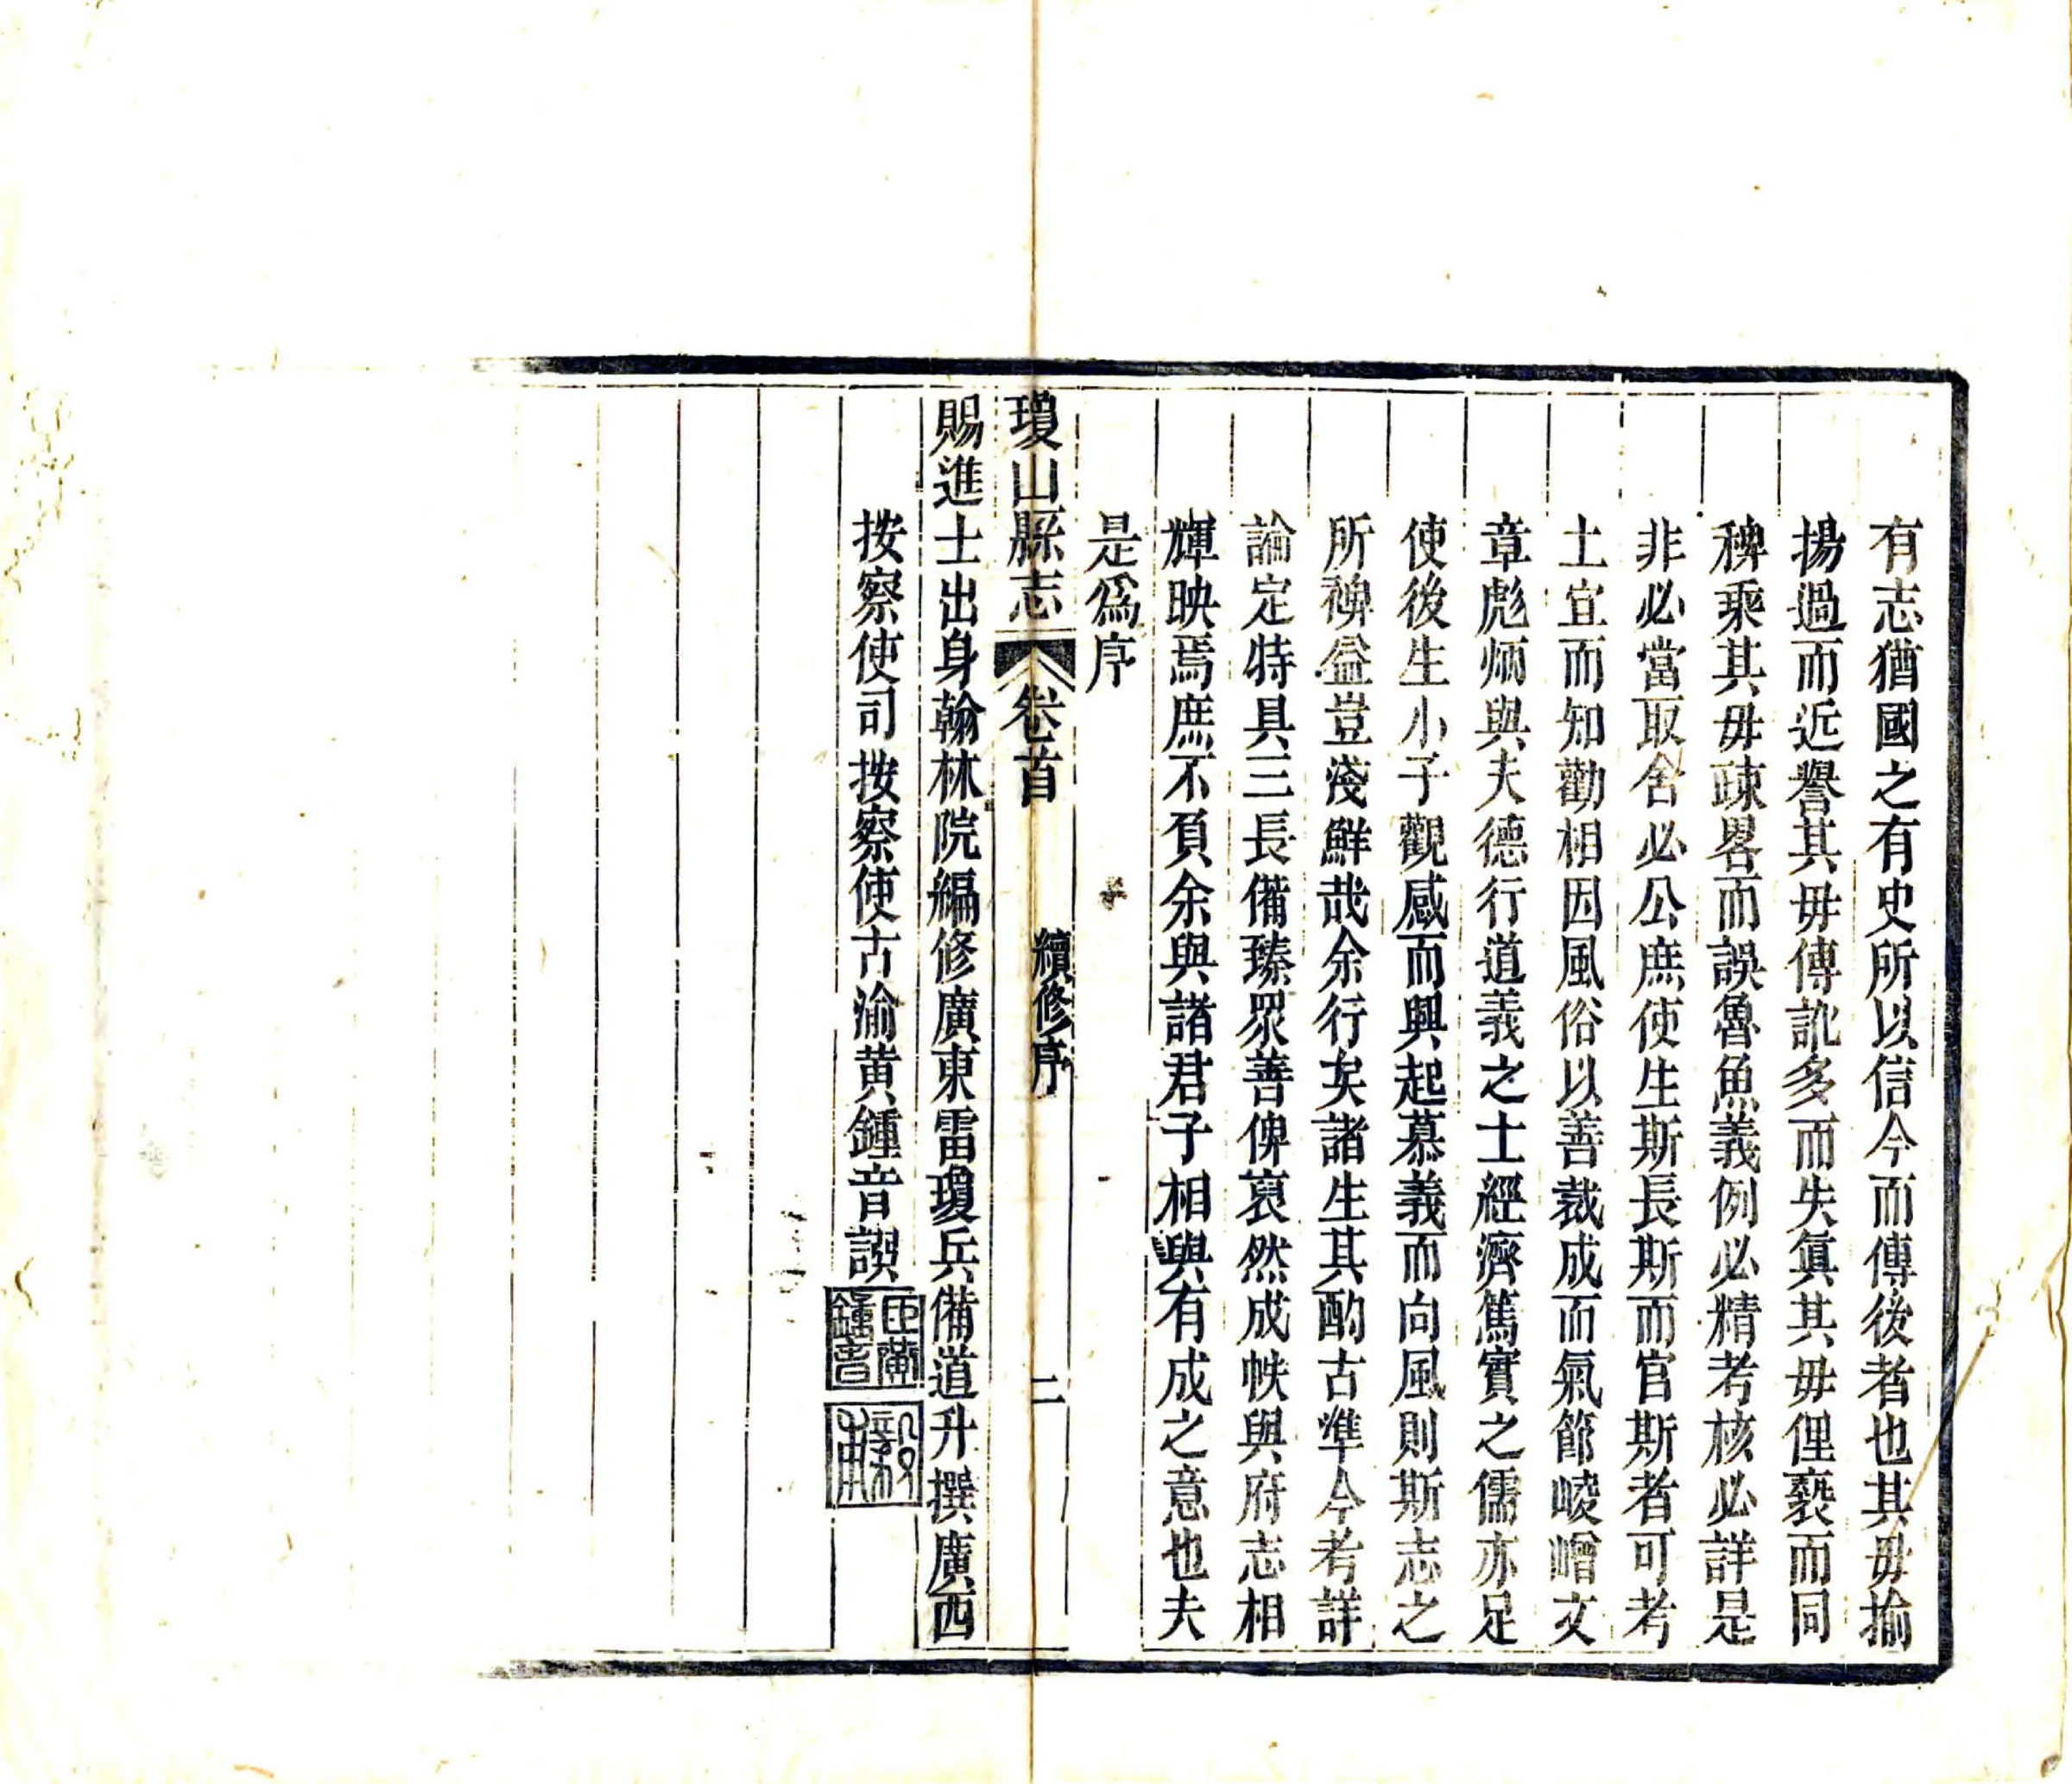 有志猶國之有史所以信今而傳後者也其毋揄
揚過而近譽其毋傳訛多而失眞其毋俚褻而同
稗乘其毋疎畧而誤魯魚義例必精考核必詳是
非必當取舍必公庶使生斯長斯而官斯者可考
土宜而知勸相因風俗以善裁成而氣節崚嶒文
章彪炳與夫德行道義之士經濟篤實之儒亦足
使後生小子觀感而興起慕義而向風則斯志之
所裨益豈淺鮮哉余行矣諸生其酌古準今考詳
論定特具三長備臻眾善俾裒然成帙與府志相
輝映焉庶不負余與諸君子相與有成之意也夫
是爲序
瓊山縣志 卷首 續修序 二
賜進士出身翰林院編修廣東雷瓊兵備道升撰廣西
按察使司按察使古渝黄鍾音譔
臣黄鍾音
毅甫